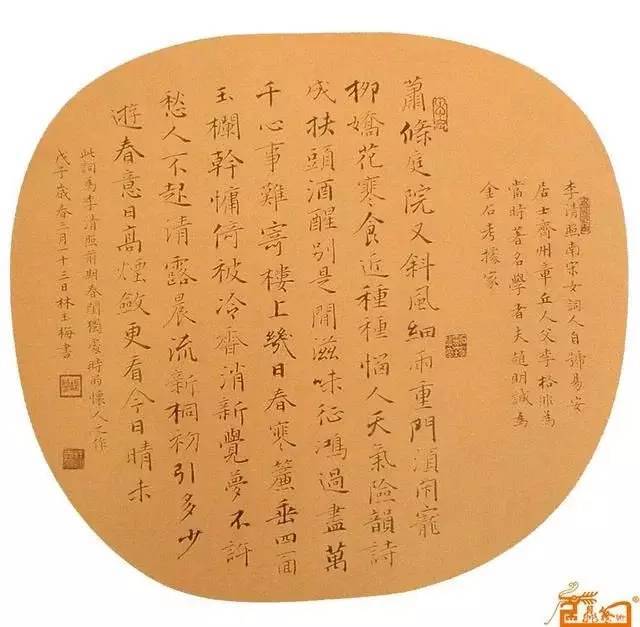 李清照南宋女詞人自號易安
居士齊州章丘人父李格非為
當時著名學者夫趙明誠為
金石考據家
蕭條庭院又斜風細雨重門湏閇寵
柳嬌花寒食近種種惱人天氣險韻詩
成扶頭酒醒別是閒滋味征鴻過盡萬
千心事難寄樓上幾日春寒簾垂四面
玉欄幹慵倚被冷香消新覺夢不許
愁人不起清露晨流新桐初引多少
遊春意日高煙斂更看今日晴未
此詞為李清照前期春閨獨處時懷人之作
戊子歲春三月十三日林玉梅書